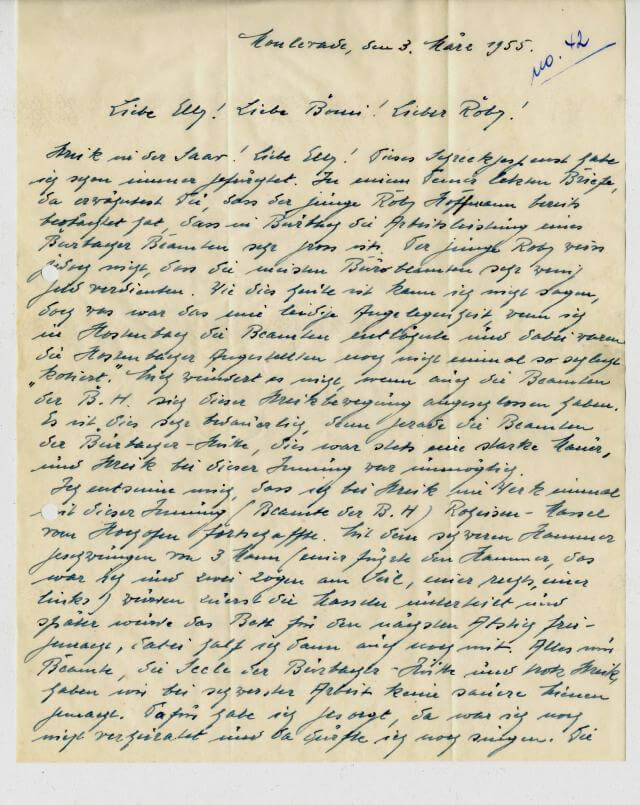 Monlevade, den 3. März 1955.
no. 42
Liebe Elly! Liebe Bömi! Lieber Röby!
Streik in der Saar! Liebe Elly! Dieses Schreckgespenst habe
ich schon immer gefürchtet. In einem Deines letzten Briefe,
da erwähntest Du, dass der junge Röby Hoffmann bereits
beobachtet hat, dass in Burbach die Arbeitsleistung eines
Burbacher Beamten sehr gross ist. Der junge Roby weiss
jedoch nicht, dass die meisten Bürobeamten sehr wenig
Geld verdienten. Wie dies heute ist kann ich nicht sagen,
doch was war das eine leidige Angelegenheit wenn ich
in Hostenbach die Beamten entlöhnte und dabei waren
die Hostenbacher Angestellten noch nicht einmal so schlecht
"kotiert". Mich wundert es nicht, wenn auch die Beamten
der B.H. sich dieser Streikbewegung angeschlossen haben.
Es ist dies sehr bedauerlich, denn gerade die Beamten
der Burbacher-Hütte, dies war stets eine starke Mauer,
und Streik bei dieser Innung war unmöglich.
Ich entsinne mich, dass ich bei Streik im Werk einmal
mit dieser Innung (Beamte der B.H) Roheisen-Massel
vom Hochofen fortschaffte. Mit dem schweren Hammer
geschwungen von 3 Mann (einer führte den Hammer, das
war ich und zwei zogen am Seil, einer rechts, einer
links) wurden zuerst die Masseln unterteilt und
später wurde das Bett für den nächsten Abstich frei-
gemacht, dabei half ich dann auch noch mit. Alles nur
Beamte, die Seele der Burbacher-Hütte und trotz Streik
haben wir bei schwerster Arbeit keine sauere Mienen
gemacht. Dafür habe ich gesorgt, da war ich noch
nicht verheiratet und da durfte ich noch singen. Die